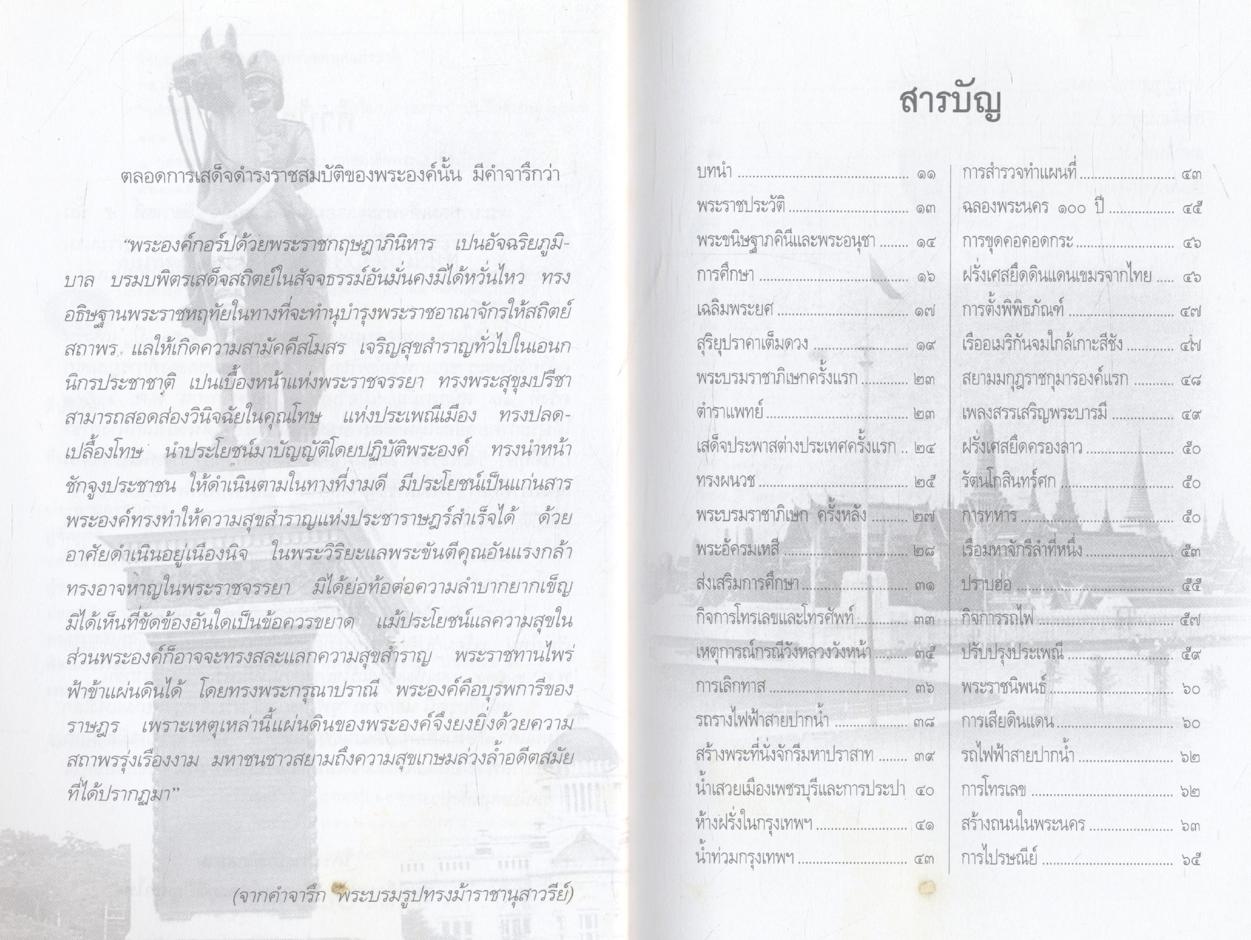 ตลอดการเสด็จดำรงราชสมบัติของพระองค์นั้น มีคำจารึกว่า
“พระองค์กอร์ปด้วยพระราชกฤษฎาภินิหาร เปนอัจฉริยภูมิ-
บาล บรมบพิตรเสด็จสถิตย์ในสัจจธรรม์อันมั่นคงมิได้หวั่นไหว ทรง
อธิษฐานพระราชหฤทัยในทางที่จะทำนุบำรุงพระราชอาณาจักรให้สถิตย์
สถาพร แลให้เกิดความสามัคคีสโมสร เจริญสุขสำราญทั่วไปในเอนก
นิกรประชาชาติ เปนเบื้องหน้าแห่งพระราชจรรยา ทรงพระสุขุมปรีชา
สามารถสอดส่องวินิจฉัยในคุณโทษ แห่งประเพณีเมือง ทรงปลด-
เปลื้องโทษ นำประโยชน์มาบัญญัติโดยปฏิบัติพระองค์ ทรงนำหน้า
ชักจูงประชาชน ให้ดำเนินตามในทางที่งามดี มีประโยชน์เป็นแก่นสาร
พระองค์ทรงทำให้ความสุขสำราญแห่งประชาราษฎร์สำเร็จได้ ด้วย
อาศัยดำเนินอยู่เนืองนิจ ในพระวิริยะแลพระขันตีคุณอันแรงกล้า
ทรงอาจหาญในพระราชจรรยา มิได้ย่อท้อต่อความลำบากยากเข็ญ
มิได้เห็นที่ขัดข้องอันใดเป็นข้อควรขยาด แม้ประโยชน์แลความสุขใน
ส่วนพระองค์ก็อาจจะทรงสละแลกความสุขสำราญ พระราชทานไพร่
ฟ้าข้าแผ่นดินได้ โดยทรงพระกรุณาปราณี พระองค์คือบุรพการีของ
ราษฎร เพราะเหตุเหล่านี้แผ่นดินของพระองค์จึงยงยิ่งด้วยความ
สถาพรรุ่งเรืองงาม มหาชนชาวสยามถึงความสุขเกษมล่วงล้ำอดีตสมัย
ที่ได้ปรากฏมา”
(จากคำจารึก พระบรมรูปทรงม้าราชานุสาวรีย์)
สารบัญ
บทนำ ........ ๑๑
พระราชประวัติ ........ ๑๓
พระขนิษฐาภคินีและพระอนุชา ....... ๑๔
การศึกษา ........ ๑๖
เฉลิมพระยศ ........ ๑๗
สุริยุปราคาเต็มดวง ........ ๑๙
พระบรมราชาภิเษกครั้งแรก ........ ๒๓
ตำราแพทย์ ........ ๒๓
เสด็จประพาสต่างประเทศครั้งแรก .. ๒๔
ทรงผนวช ........ ๒๕
พระบรมราชาภิเษก ครั้งหลัง ........ ๒๗
พระอัครมเหสี ........ ๒๘
ส่งเสริมการศึกษา ........ ๓๑
กิจการโทรเลขและโทรศัพท์ ........ ๓๓
เหตุการณ์กรณีวังหลวงวังหน้า ........ ๓๕
การเลิกทาส ........ ๓๖
รถรางไฟฟ้าสายปากน้ำ ........ ๓๘
สร้างพระที่นั่งจักรีมหาปราสาท ....... ๓๙
น้ำเสวยเมืองเพชรบุรีและการประปา ๔๐
ห้างฝรั่งในกรุงเทพฯ ........ ๔๑
น้ำท่วมกรุงเทพฯ ........ ๔๓
การสำรวจทำแผนที่ ........ ๔๓
ฉลองพระนคร ๑๐๐ ปี ........ ๔๕
การขุดคอคอดกระ ........ ๔๖
ฝรั่งเศสยึดดินแดนเขมรจากไทย ..... ๔๖
การตั้งพิพิธภัณฑ์ ........ ๔๗
เรืออเมริกันจมใกล้เกาะสีชัง ........ ๔๗
สยามมกุฎราชกุมารองค์แรก ........ ๔๘
เพลงสรรเสริญพระบารมี ........ ๔๙
ฝรั่งเศสยึดครองลาว ........ ๕๐
รัตนโกสินทร์ศก ........ ๕๐
การทหาร ........ ๕๐
เรือมหาจักรีลำที่หนึ่ง ........ ๕๓
ปราบฮ่อ ........ ๕๕
กิจการรถไฟ ........ ๕๗
ปรับปรุงประเพณี ........ ๕๙
พระราชนิพนธ์ ........ ๖๐
การเสียดินแดน ........ ๖๐
รถไฟฟ้าสายปากน้ำ ........ ๖๒
การโทรเลข ........ ๖๒
สร้างถนนในพระนคร ........ ๖๓
การไปรษณีย์ ........ ๖๕